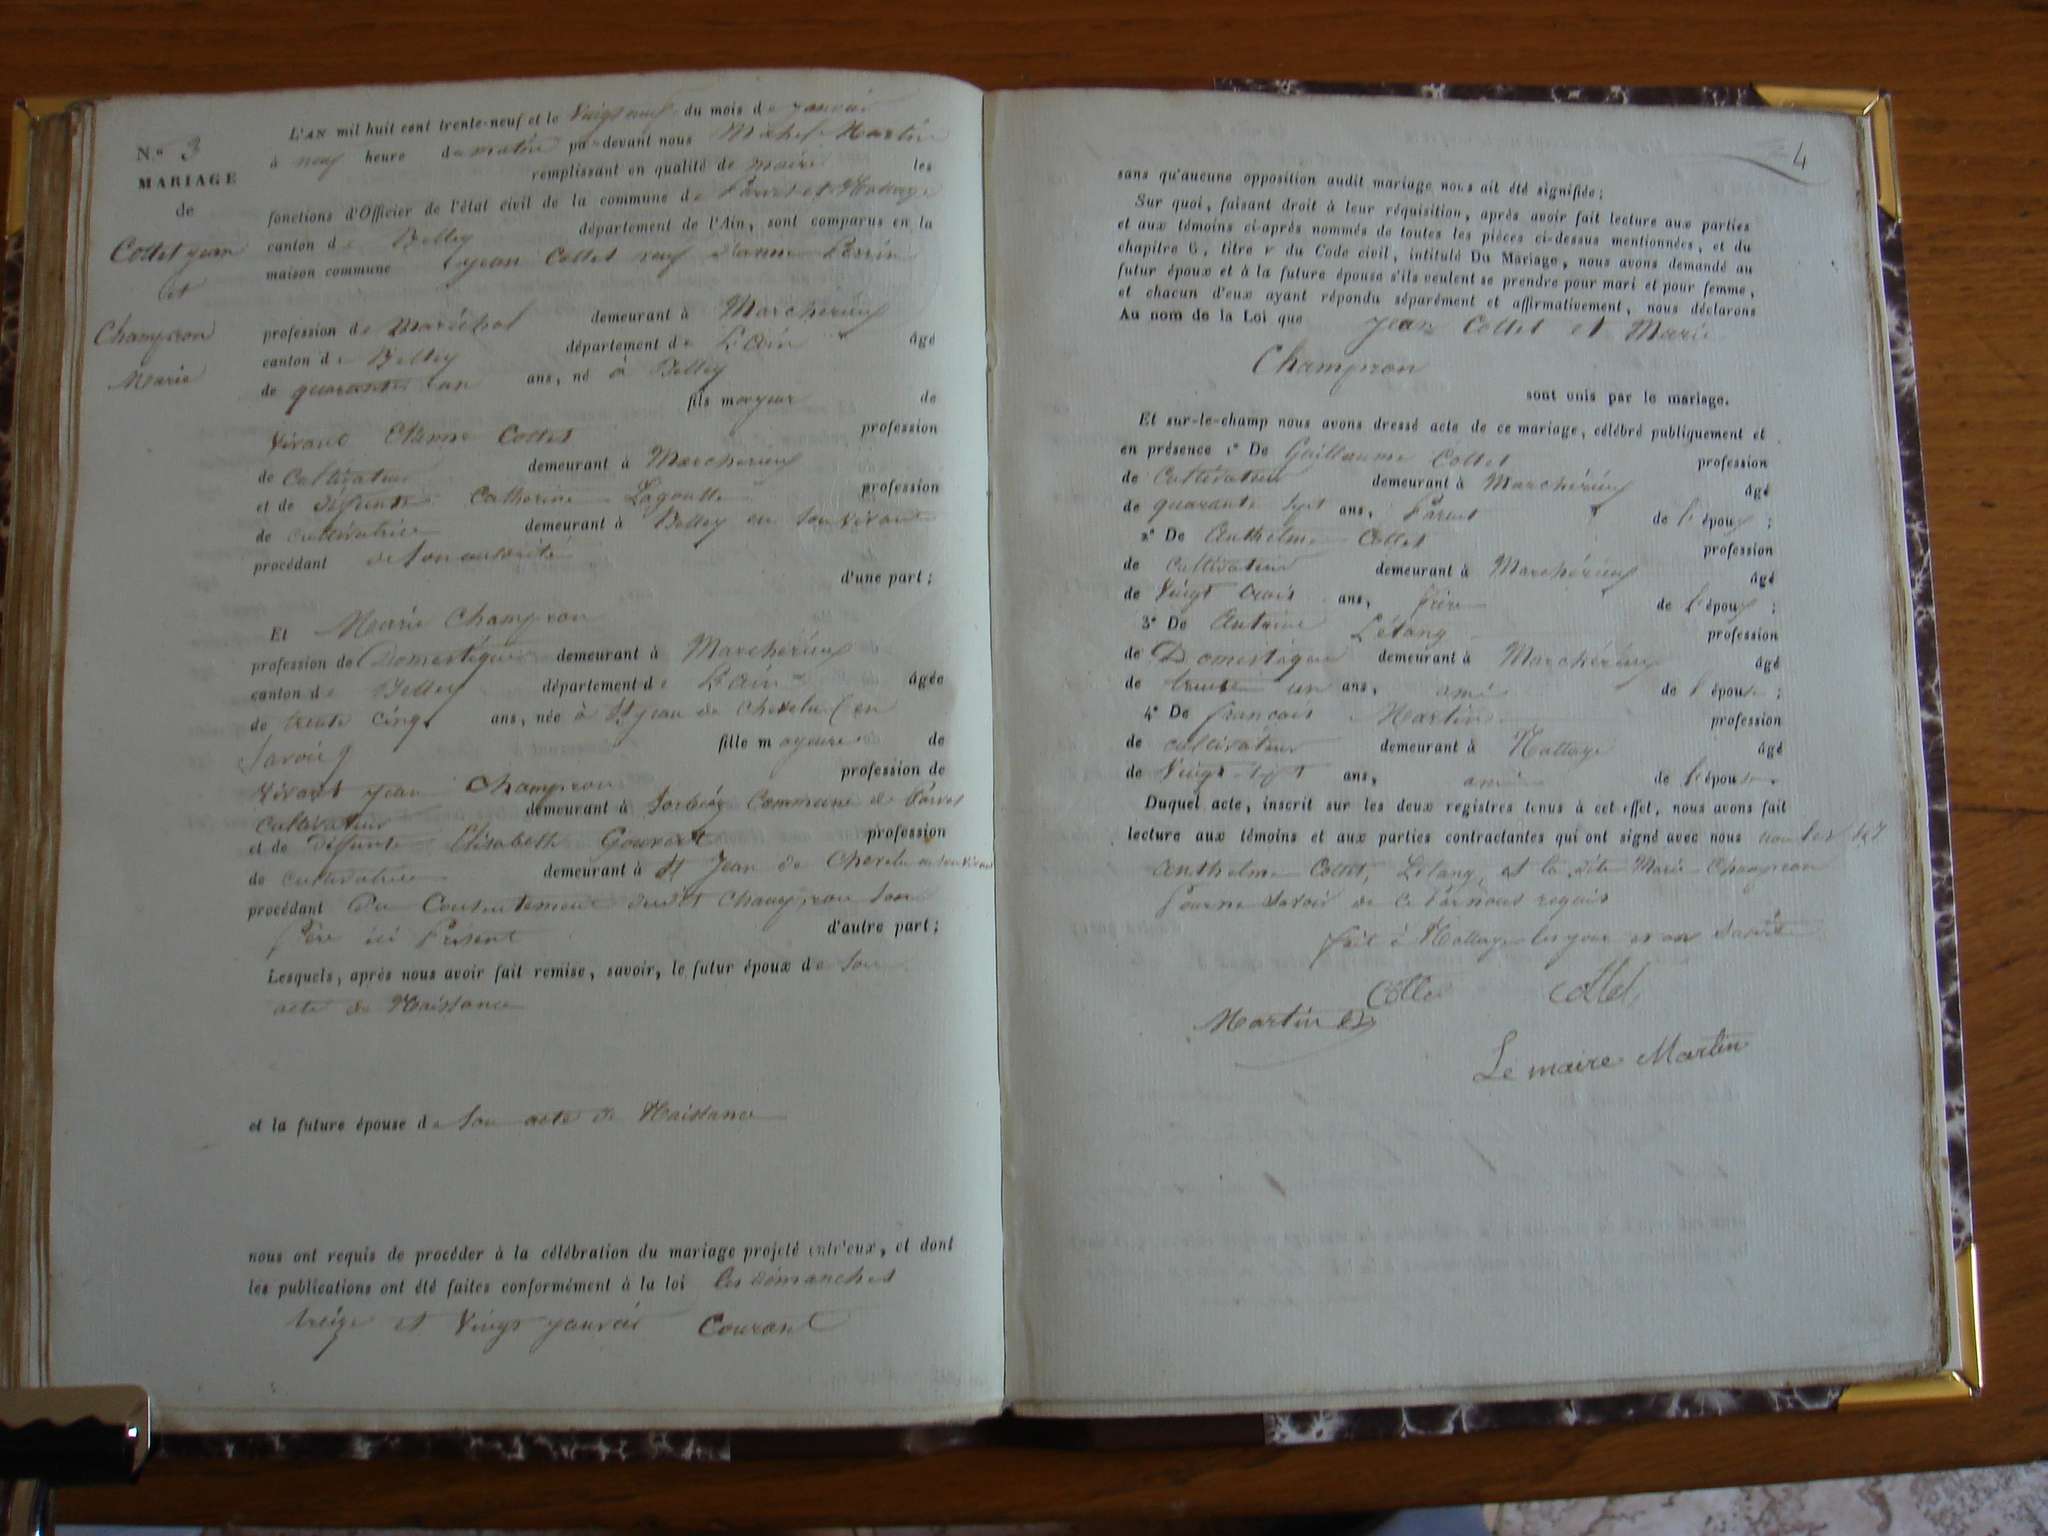 N.o 3
MARIAGE
de
Collet jean
et
Champron
Marie
L'AN mil huit cent trente-neuf et le Vingt neuf du mois de janvier
à neuf heure du matin par-devant nous Michel Martin
remplissant en qualité de maire les
fonctions d'Officier de l'état civil de la commune de Parves et Nattage
canton de Belley département de l'Ain, sont comparus en la
maison commune jean Collet veuf d'anne Perrin
profession de Maréchal demeurant à Marchérieux
canton de Belley département de L'ain âgé
de quarante un ans, né à Belley
fils mayeur de
Vivant Etienne Collet profession
de Cultivateur demeurant à Marcherieux
et de défunte Catherine Lagoutte profession
de cultivatrice demeurant à Belley en son vivant
procédant de son autorité
d'une part;
Et Marie Champron
profession de Domestique demeurant à Marchérieux
canton de Belley département de L'ain âgée
de trente cinq ans, née à St jean de Chevelu (en
Savoie)
fille mayeure de
Vivant jean Champron profession de
cultivateur demeurant à Sorbier Commune de Parves
et de défunte Elisabeth profession
de cultivatrice demeurant à St Jean de Chevelu en son vivant
procédant Du Consentement dudit Champron son
Père ici Présent d'autre part;
Lesquels, après nous avoir fait remise, savoir, le futur époux de son
acte de Naissance
et la future épouse de son acte de Naissance
nous ont requis de procéder à la célébration du mariage projeté entr'eux, et dont
les publications ont été faites conformément à la loi les démanches
treize et Vingt janvier Courant
4
sans qu'aucune opposition audit mariage nous ait été signifiée;
Sur quoi, faisant droit à leur réquisition, après avoir fait lecture aux parties
et aux témoins ci-après nommés de toutes les pièces ci-dessus mentionnées, et du
chapitre 6, titre v du Code civil, intitulé Du Mariage, nous avons demandé au
futur époux et à la future épouse s'ils veulent se prendre pour mari et pour femme,
et chacun d'eux ayant répondu séparément et affirmativement, nous déclarons
Au nom de la Loi que jean Collet et Marie
Champron
sont unis par le mariage.
Et sur-le-champ nous avons dressé acte de ce mariage, célébré publiquement et
en présence 1o De Guillaume Collet profession
de Cultivateur demeurant à Marchérieux âgé
de quarante sept ans, Parent de l'époux;
2o De Anthelme Collet profession
de Cultivateur demeurant à Marchérieux âgé
de Vingt trois ans, frère de l'époux;
3o De Antoine Létang profession
de Domestique demeurant à Marchérieux âgé
de trente un ans, ami de l'épouse;
4o De françois Martin profession
de cultivateur demeurant à Nattage âgé
de Vingt sept ans, ami de l'épouse.
Duquel acte, inscrit sur les deux registres tenus à cet effet, nous avons fait
lecture aux témoins et aux parties contractantes qui ont signé avec nous non les
Anthelme Collet, Létang, et la dite Marie Champron
Pour ne savoir de ce Par nous requis
fait à Nattage les jour et an
Collet Collet
Martin
Le maire Martin